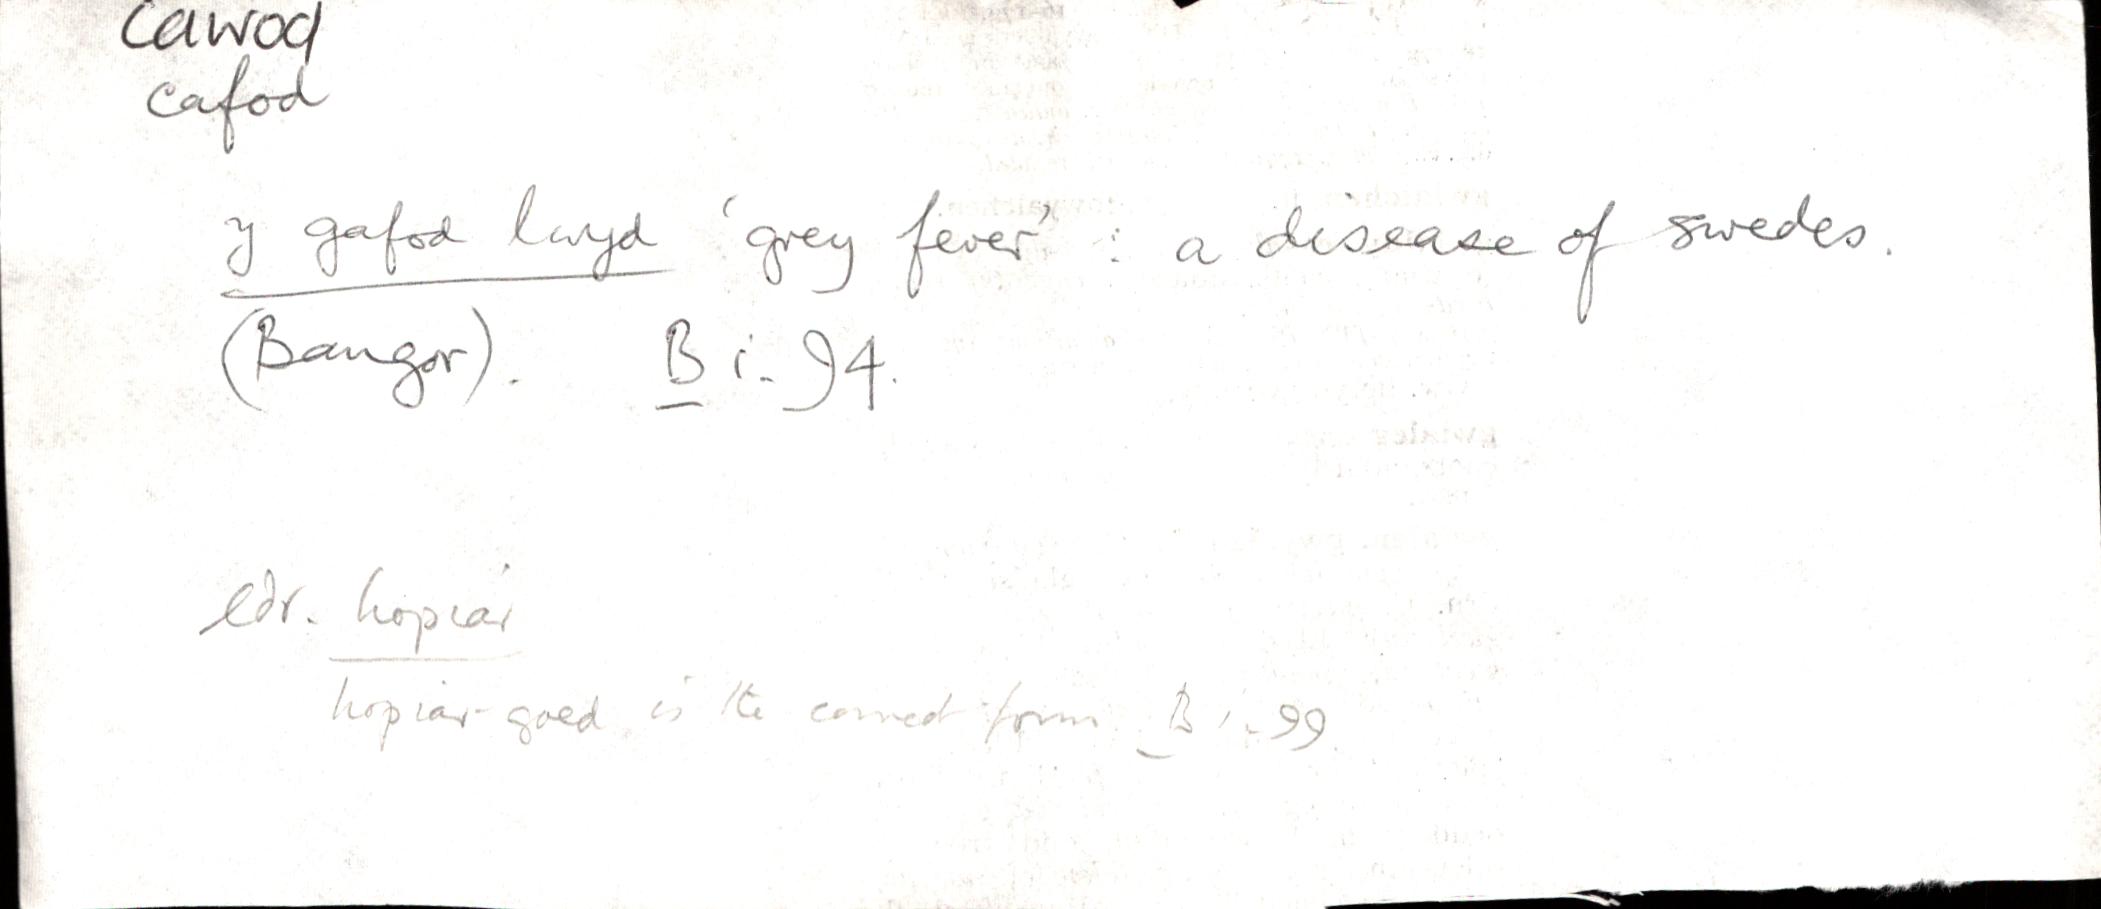 cawod
cafod
y gafod lwyd 'grey fever' : a disease of swedes.
(Bangor). B i. 94.
hopiar
hopiar-goed is the correct form B i. 99